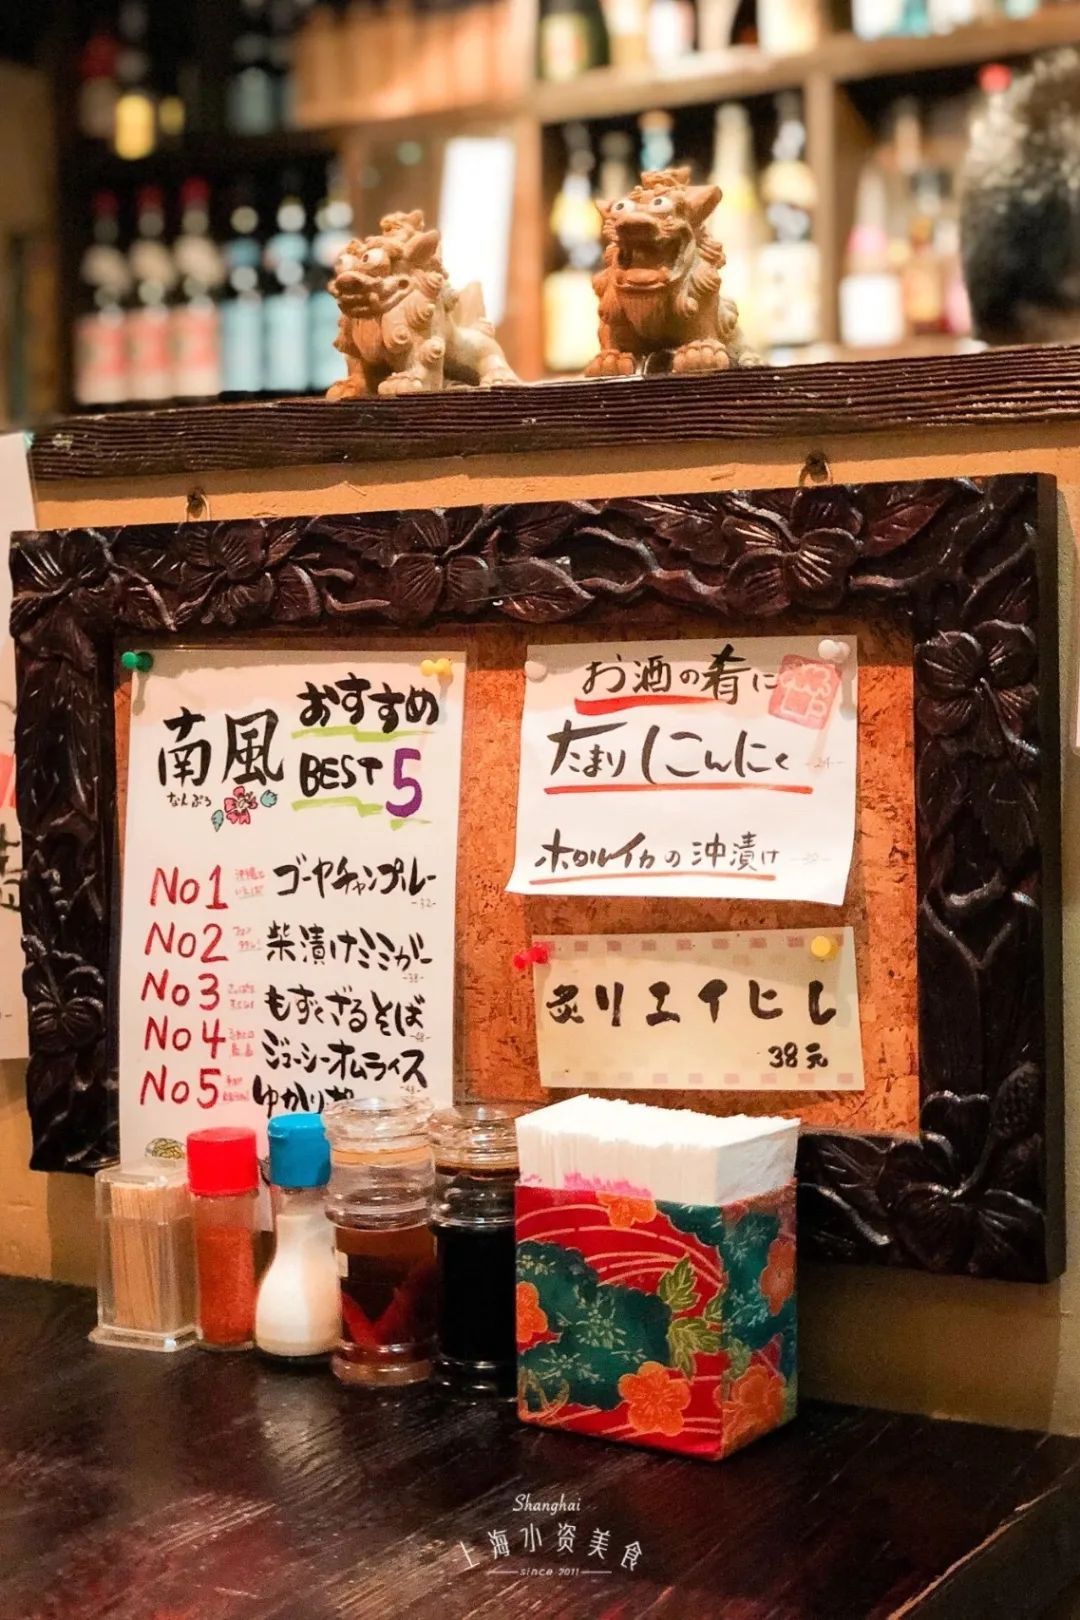 南風
なんぷう
おすすめ
BEST 5
No1 ゴーヤチャンプルー
-32-
No2 柴漬けミミガー
-38-
No3 もずくざるそば
No4 ジューシーオムライス
No5 ゆかり
お酒の肴に
たまりにんにく -24-
ホタルイカの沖漬け
炙りエイヒレ
38元
Shanghai
上海小资美食
since 2011